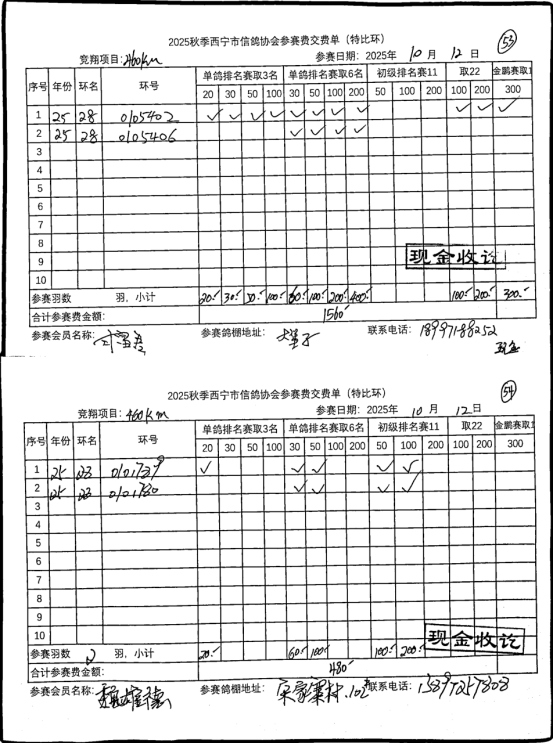 2025秋季西宁市信鸽协会参赛费交费单（特比环） 53
竞翔项目: 460km 参赛日期：2025年 10 月 12 日
序号 年份 环名 环号 单鸽排名赛取3名 单鸽排名赛取6名 初级排名赛11 取22 金鹏赛取1
20 30 50 100 30 50 100 200 50 100 200 100 200 300
1 25 28 0105402 ✓ ✓ ✓ ✓ ✓ ✓ ✓ ✓ ✓ ✓ ✓
2 25 28 0105406 ✓ ✓ ✓ ✓
3
4
5
6
7
8
9
现金收讫
10
参赛羽数 羽，小计 20 30 50 100 60 100 200 400 100 200 300
合计参赛费金额: 1560
参赛会员名称: 参赛鸽棚地址: 联系电话: 18997188252
现金
2025秋季西宁市信鸽协会参赛费交费单（特比环） 54
竞翔项目: 460km 参赛日期：2025年 10 月 12 日
序号 年份 环名 环号 单鸽排名赛取3名 单鸽排名赛取6名 初级排名赛11 取22 金鹏赛取1
20 30 50 100 30 50 100 200 50 100 200 100 200 300
1 25 28 ✓ ✓ ✓ ✓ ✓
2 25 28 ✓ ✓ ✓ ✓
3
4
5
6
7
8
9
10 现金收讫
参赛羽数 2 羽，小计 20 60 100 100 200
合计参赛费金额: 480
参赛会员名称: 参赛鸽棚地址: 联系电话: